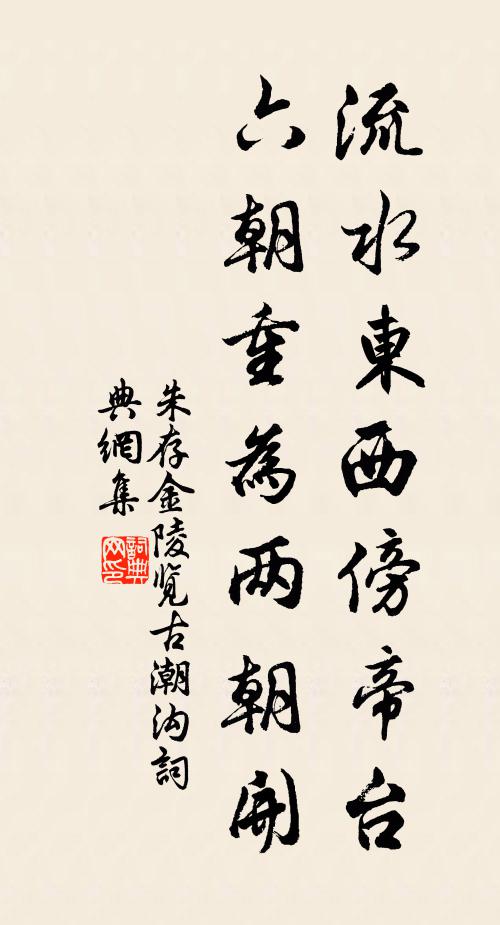 流水東西傍帝台
六朝重為两朝開
朱存金陵览古潮沟詞
典網集
詞典网印